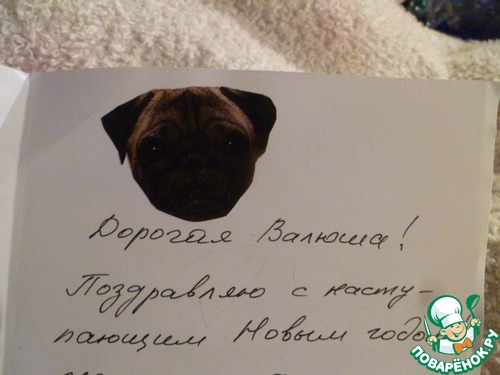 Дорогая Валюша!
Поздравляю с насту-
пающим Новым годо
ПОВАРЁНОК.РУ